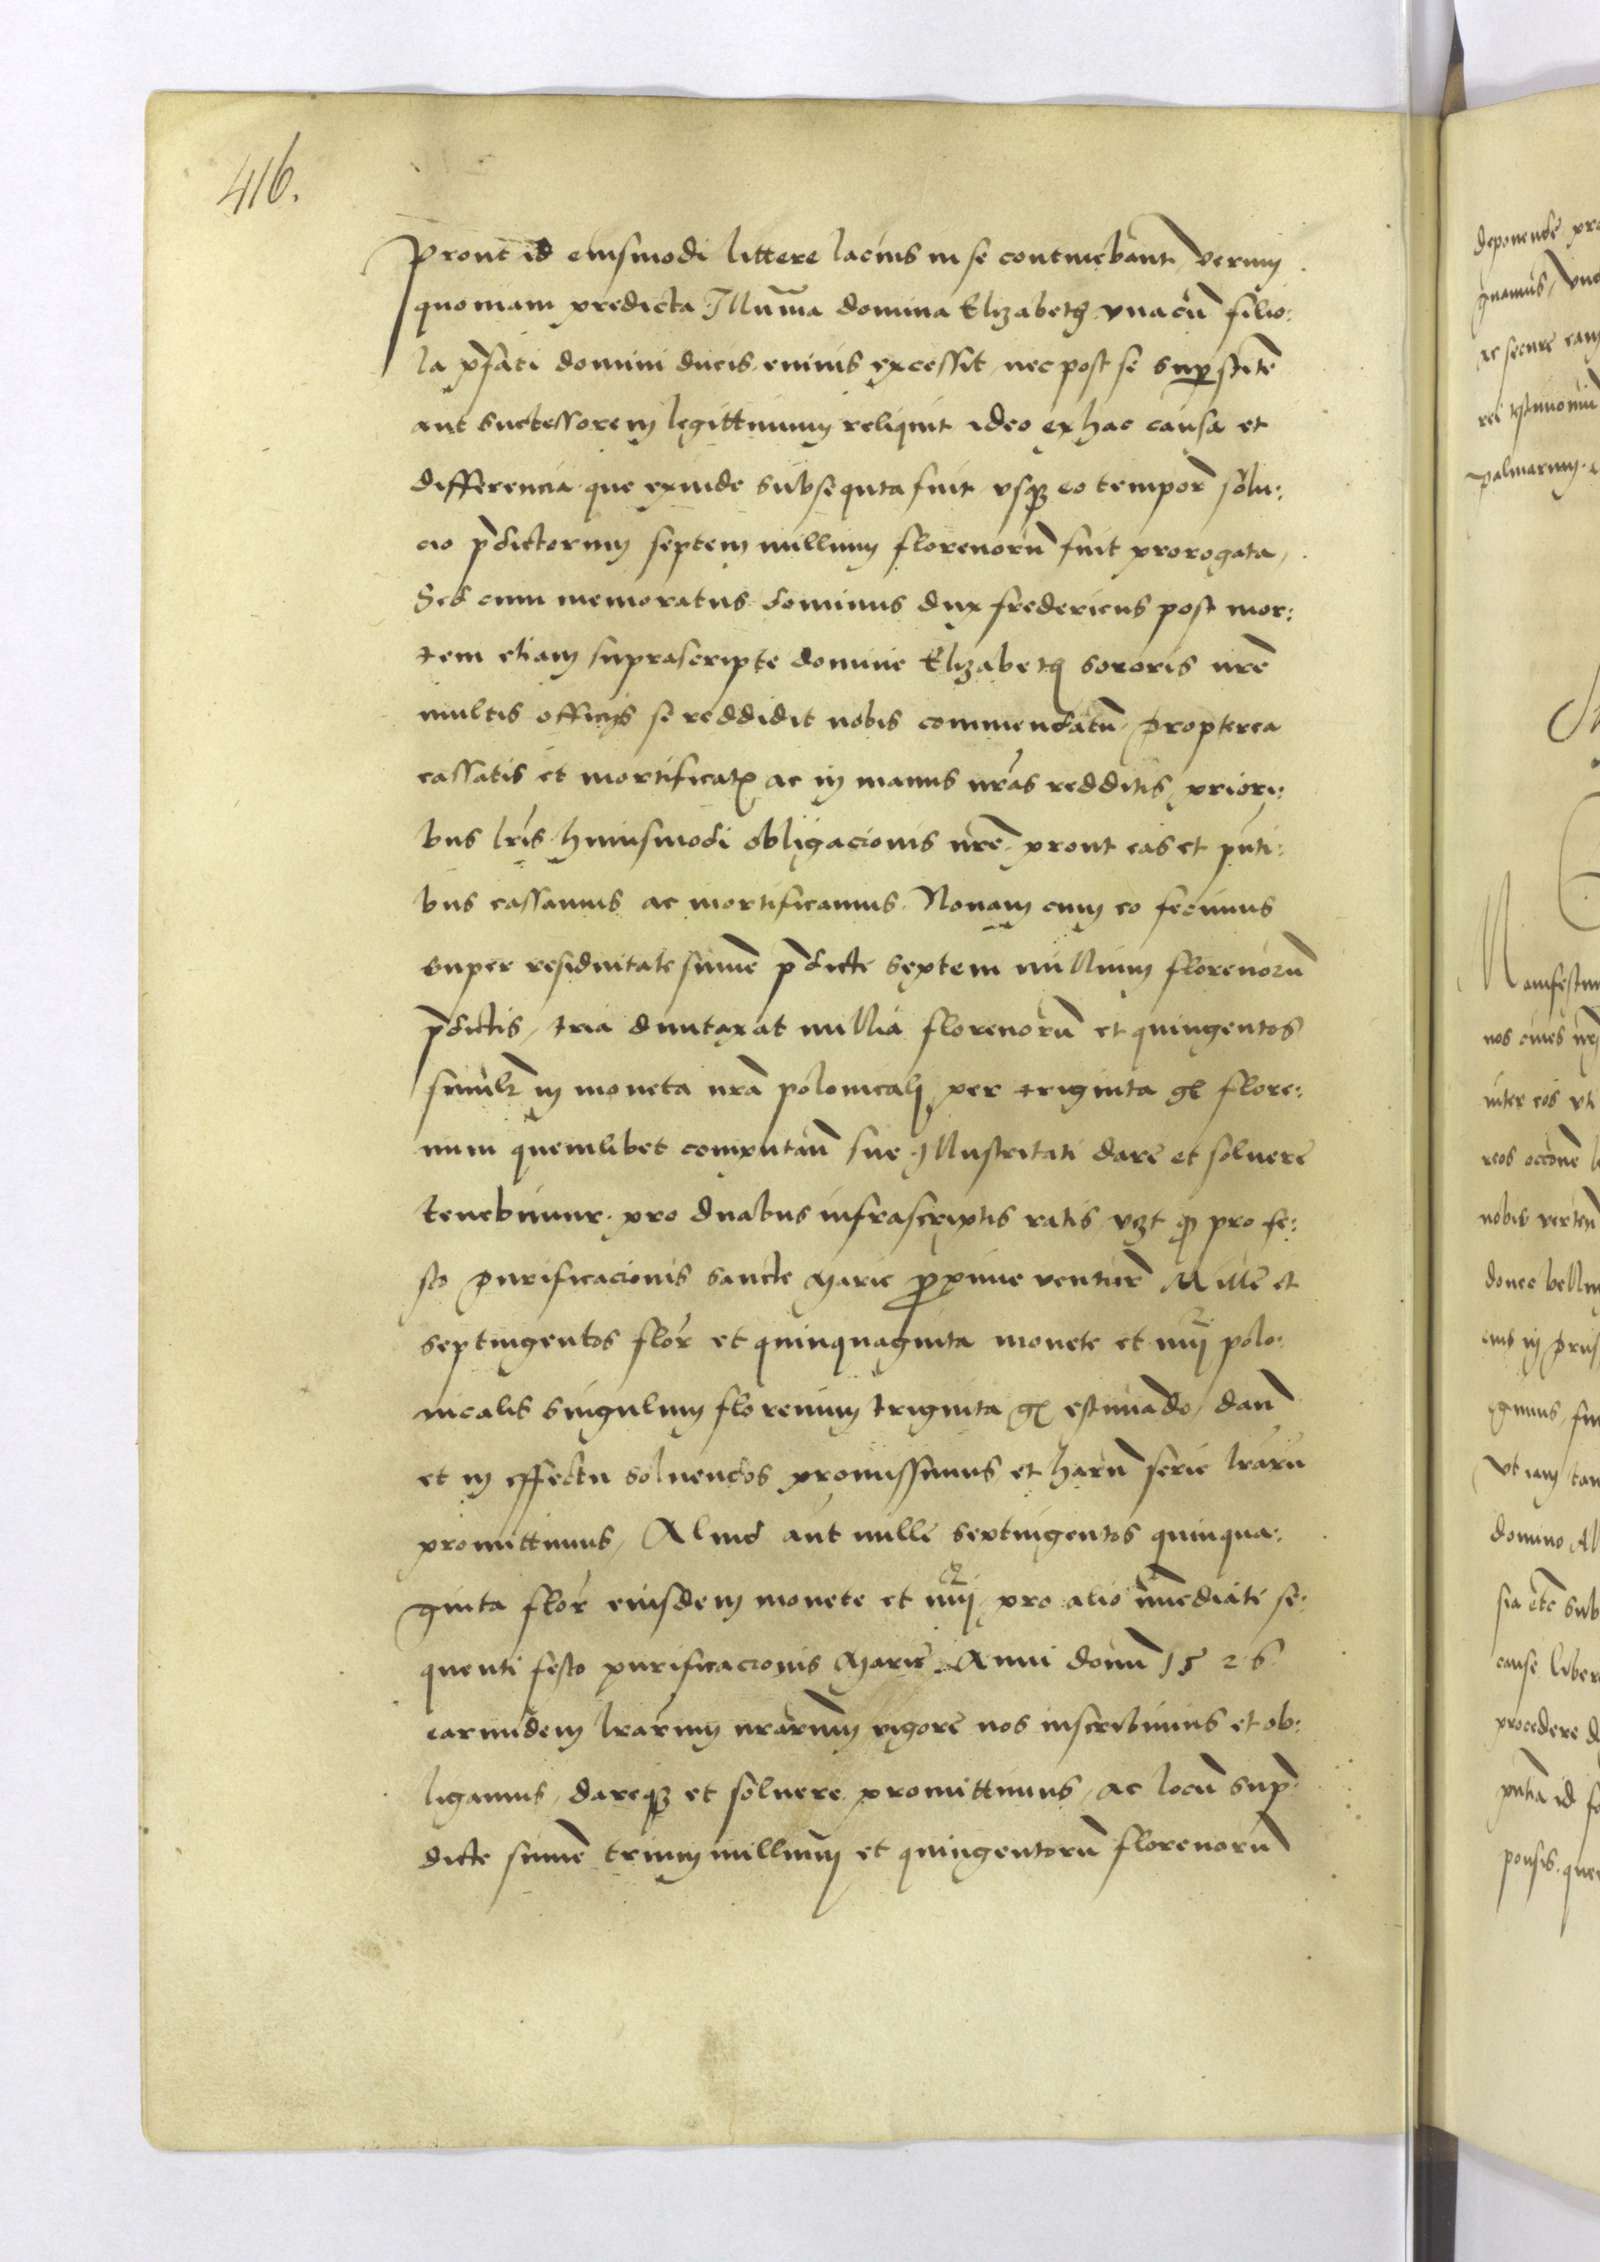 416.
Prout id eiusmodi littere lacius in se continebant, verum
quoniam predicta Illuma domina Elizabeth vnacu filio:
la pfati domini ducis eminis excessit, nec post se supstite
aut successorem legittimum reliquit ideo ex hac causa et
differencia que exinde subsequta fuit vsqz eo tempor solu:
cio pdictorum septem millium florenoru fuit prorogata,
Sed cum memoratus dominus dux fredericus post mor:
tem etiam suprascripte domine Elizabeth sororis nre
multis officijs se reddidit nobis commendatu, propterea
cassatis et mortificatis ac in manus nras redditis priori:
bus lris huiusmodi obligacionis nre, prout eas et pnti:
bus cassamus ac mortificamus. Nouam cum eo fecimus
super residuitate sume pdicte septem millium florenoru
pdictis, tria duntaxat millia florenoru et quingentos
simulr in moneta nra polonicali per triginta gr flore:
num quemlibet computan sue Illustritati dare et soluere
tenebimur, pro duabus infrascriptis ratis vzt qp pro fe:
sto purificacionis sancte Marie proxime ventur Mille et
septingentos flor et quinquaginta monete et nuij polo:
nicalis singulum florenum triginta gr estimado, dan
et in effectu soluendos promissimus et haru serie lraru
promittimus, Aliud aut mille septingentos quinqua:
ginta flor eiusdem monete et nuij pro alio imediati se:
quenti festo purificacionis Marie Anni domi 1526
earundem lrarum nrarum vigore nos inscribimus et ob:
ligamus, dareqz et soluere promittimus, ac locu sup
dicte sume trium millium et quingentoru florenoru
deponende
gnamus,
ac secure
rei testimoniu
palmarum
Manifestum
nos ciues
inter eos vti
reos
nobis verten
donec bellu
in prus
gimus,
vt iam
domino Al
sia etc sub
cause liber
procedere
id
ponsis.